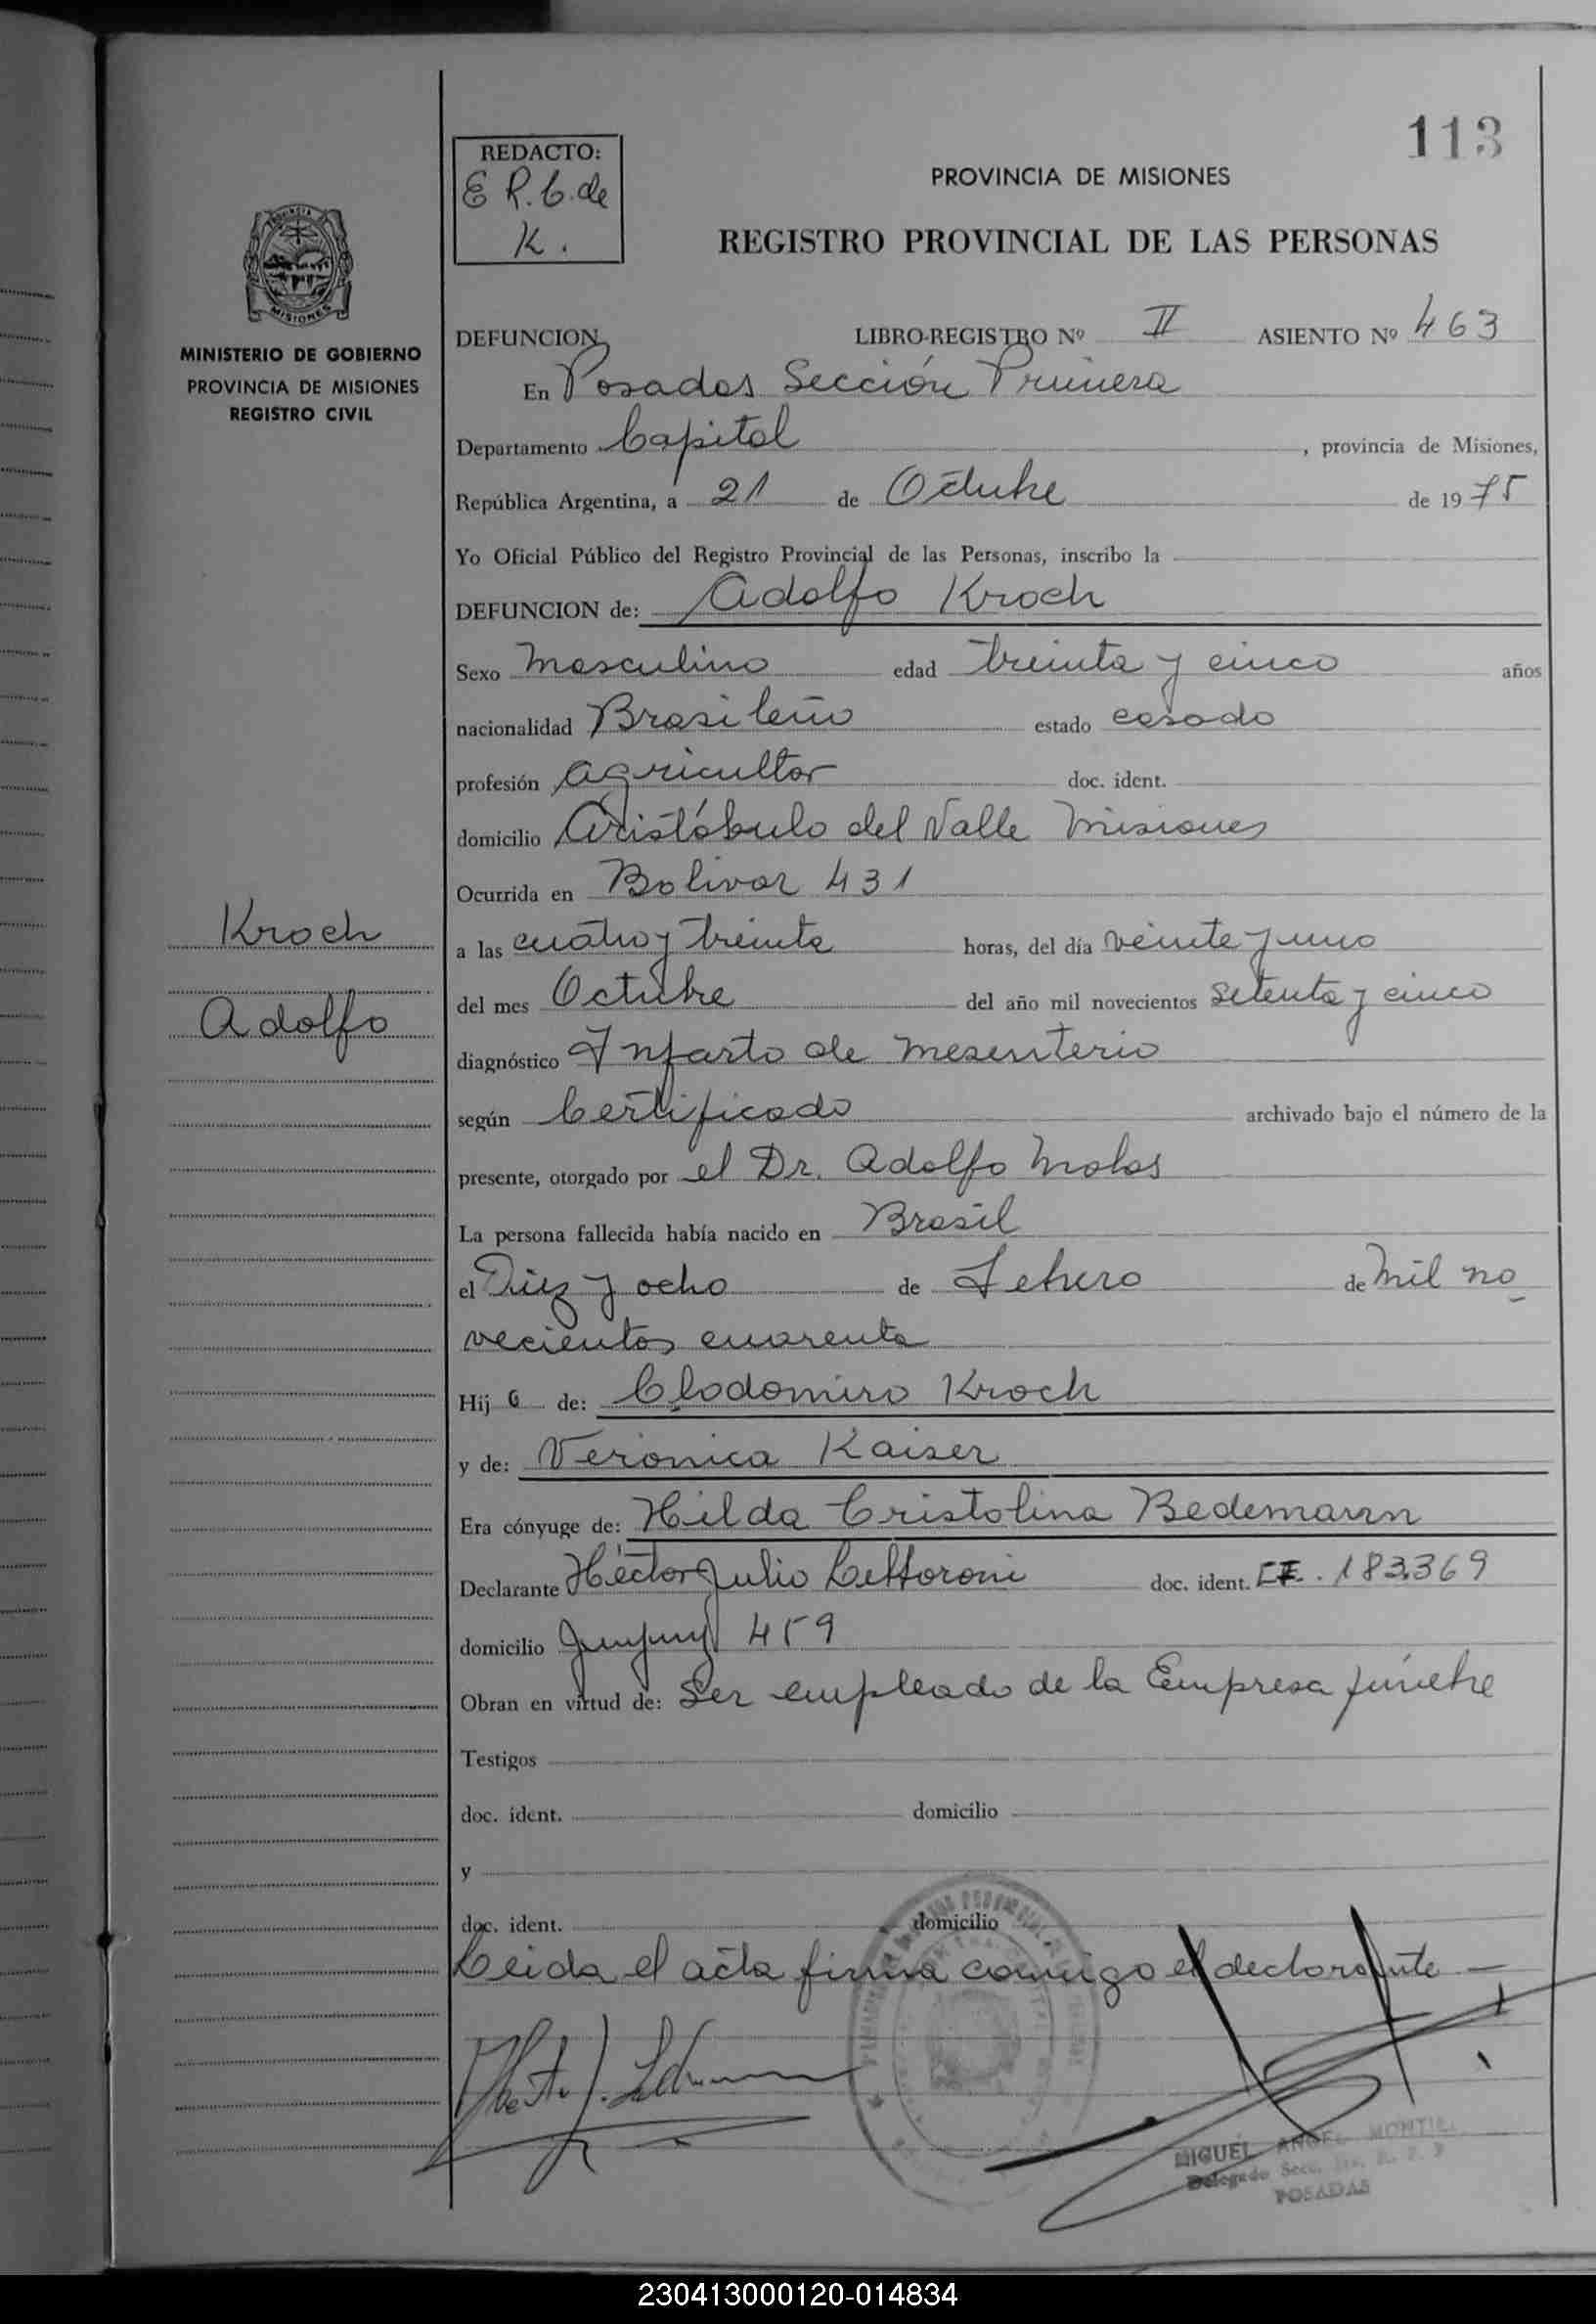 113
REDACTO:
E R. C. de
K.
PROVINCIA DE MISIONES
REGISTRO PROVINCIAL DE LAS PERSONAS
MISIONES
MINISTERIO DE GOBIERNO
PROVINCIA DE MISIONES
REGISTRO CIVIL
DEFUNCION LIBRO-REGISTRO Nº II ASIENTO Nº 463
En Posadas Sección Primera
Departamento Capital , provincia de Misiones,
República Argentina, a 21 de Octubre de 1975
Yo Oficial Público del Registro Provincial de las Personas, inscribo la
DEFUNCION de: Adolfo Kroch
Sexo Masculino edad treinta y cinco años
nacionalidad Brasileño estado casado
profesión agricultor doc. ident.
domicilio Aristóbulo del Valle Misiones
Ocurrida en Bolivar 431
Kroch
Adolfo
a las cuatro y treinta horas, del día veinte y uno
del mes Octubre del año mil novecientos setenta y cinco
diagnóstico Infarto de mesenterio
según Certificado archivado bajo el número de la
presente, otorgado por el Dr. Adolfo Molas
La persona fallecida había nacido en Brasil
el Diez y ocho de Febrero de Mil no
vecientos cuarenta
Hijo de: Clodomiro Kroch
y de: Verónica Kaiser
Era cónyuge de: Hilda Cristolina Bedemann
Declarante Héctor Julio doc. ident. CI. 183.369
domicilio Jujuy 459
Obran en virtud de: Ser empleado de la Empresa fúnebre
Testigos
doc. ident. domicilio
y
doc. ident. domicilio
Leida el acta firma conmigo el declarante —
MIGUEL ANGEL MONTIEL
Delegado Secc. 1ra. R. P. P
POSADAS
230413000120-014834